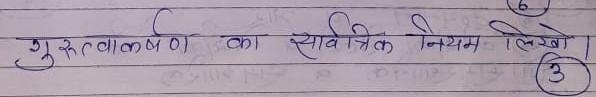 6
गुरुत्वाकर्षण का सार्वत्रिक नियम लिखो।
3